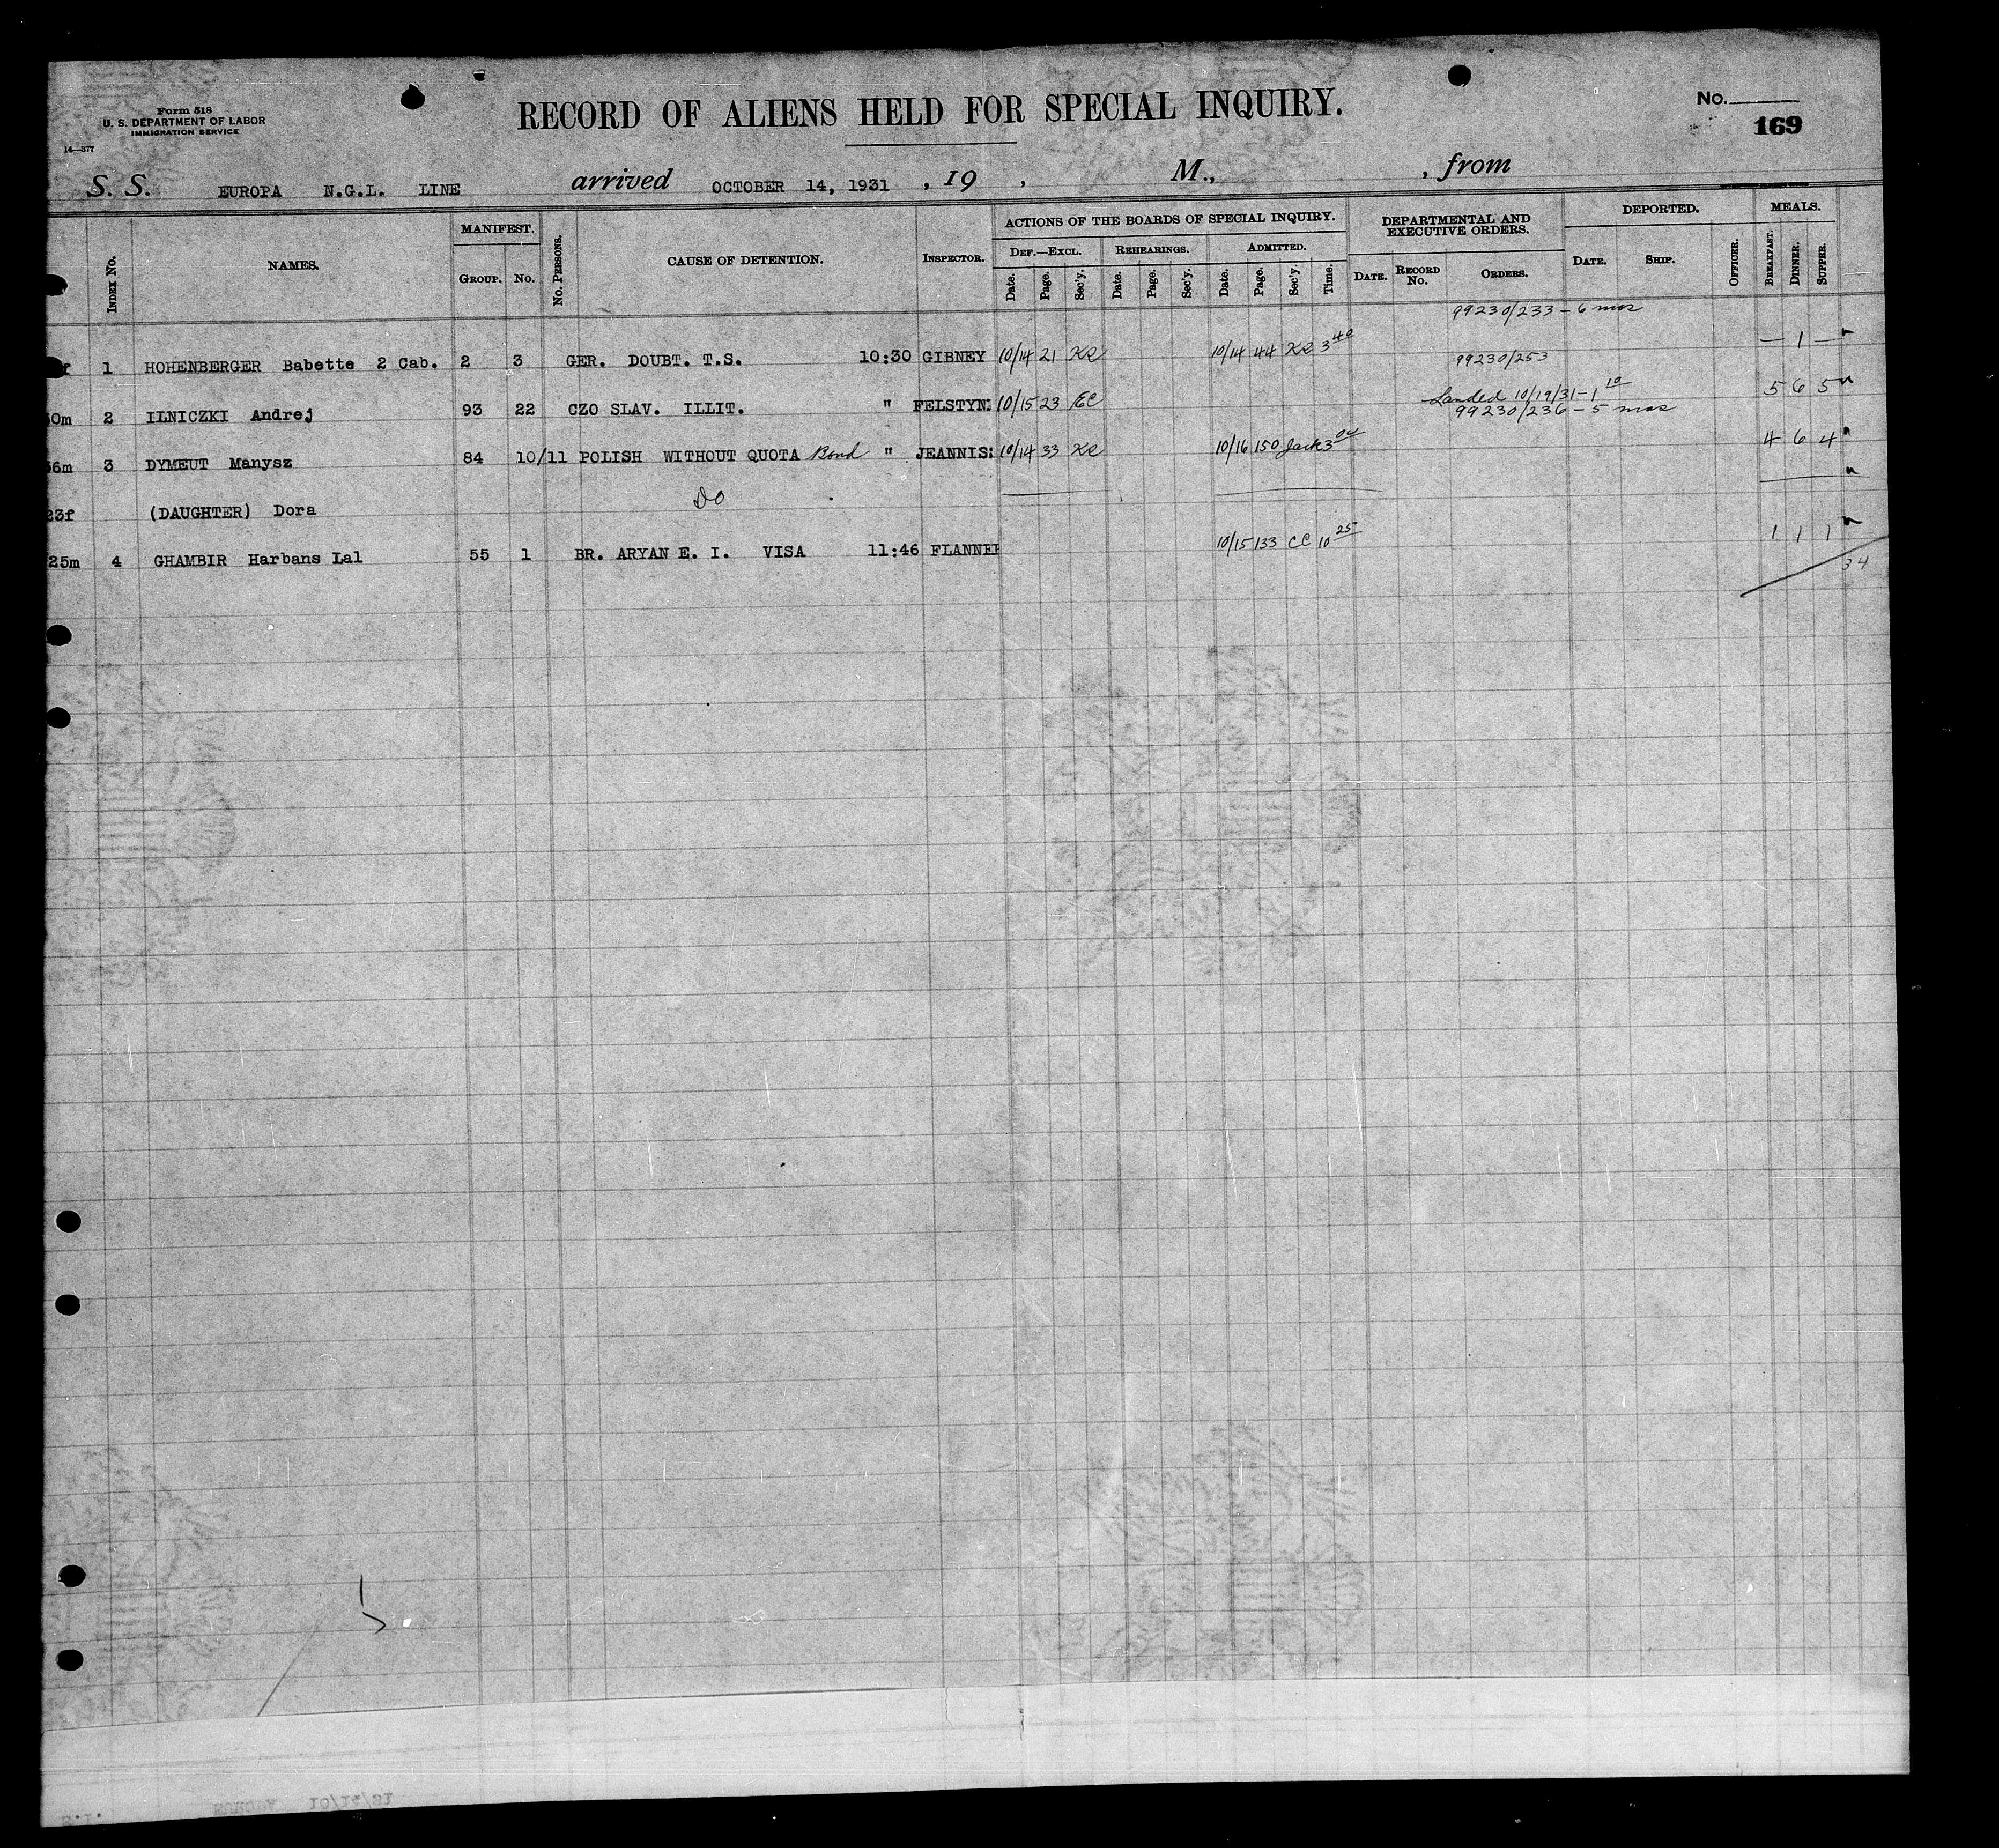 Form 518
U. S. DEPARTMENT OF LABOR
IMMIGRATION SERVICE
14—377
RECORD OF ALIENS HELD FOR SPECIAL INQUIRY.
No.
169
S. S. EUROPA N.G.L. LINE arrived OCTOBER 14, 1931 , 19 , M., , from
INDEX No. NAMES. MANIFEST. GROUP. No. No. PERSONS. CAUSE OF DETENTION. INSPECTOR. ACTIONS OF THE BOARDS OF SPECIAL INQUIRY. DEF.—EXCL. Date. Page. Sec'y. REHEARINGS. Date. Page. Sec'y. ADMITTED. Date. Page. Sec'y. Time. DEPARTMENTAL AND EXECUTIVE ORDERS. DATE. RECORD No. ORDERS. DEPORTED. DATE. SHIP. OFFICER. MEALS. BREAKFAST. DINNER. SUPPER.
99230/233 – 6 mos
f 1 HOHENBERGER Babette 2 Cab. 2 3 GER. DOUBT. T.S. 10:30 GIBNEY 10/14 21 10/14 44 3 40 — 1 —
99230/253
Landed 10/19/31 – 1 10
0m 2 ILNICZKI Andrej 93 22 CZO SLAV. ILLIT. " FELSTYN 10/15 23 EC 5 6 5
99230/236 – 5 mos
6m 3 DYMEUT Manysz 84 10/11 POLISH WITHOUT QUOTA Bond " JEANNIS 10/14 33 10/16 150 Jack 3 04 4 6 4
23f (DAUGHTER) Dora DO
25m 4 GHAMBIR Harbans Lal 55 1 BR. ARYAN E. I. VISA 11:46 FLANNE 10/15 133 CC 10 25 1 1 1
34
EUROPA 10/14/31